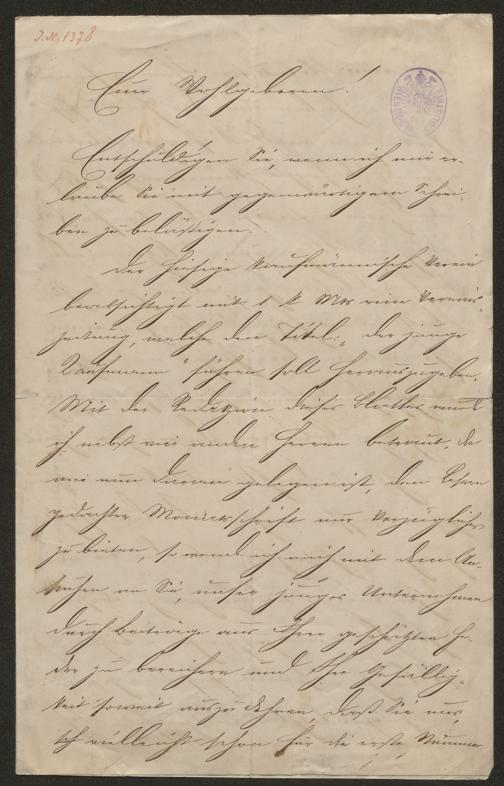 J.N. 1378
Euer Wohlgeboren!
Entschuldigen Sie, wenn ich mir er-
laube Sie mit gegenwärtigem Schrei-
ben zu belästigen.
Der hiesige kaufmännische Verein
beabsichtigt mit 1. k. Mts eine Vereins-
zeitung, welche den Titel: „der junge
Kaufmann“ führen soll herauszugeben.
Mit der Redaktion dieses Blattes wurde
ich nebst zwei andern Herren betraut. Da
mir nun daran gelegen ist, den Lesern
gedachter Monatsschrift nur Vorzügliches
zu bieten, so wende ich mich mit dem An-
suchen an Sie, unser junges Unternehmen
durch Beiträge aus Ihrer geschätzten Fe-
der zu bereichern und Ihre Gefällig-
keit soweit auszudehnen, daß Sie uns,
vielleicht schon für die erste Nummer